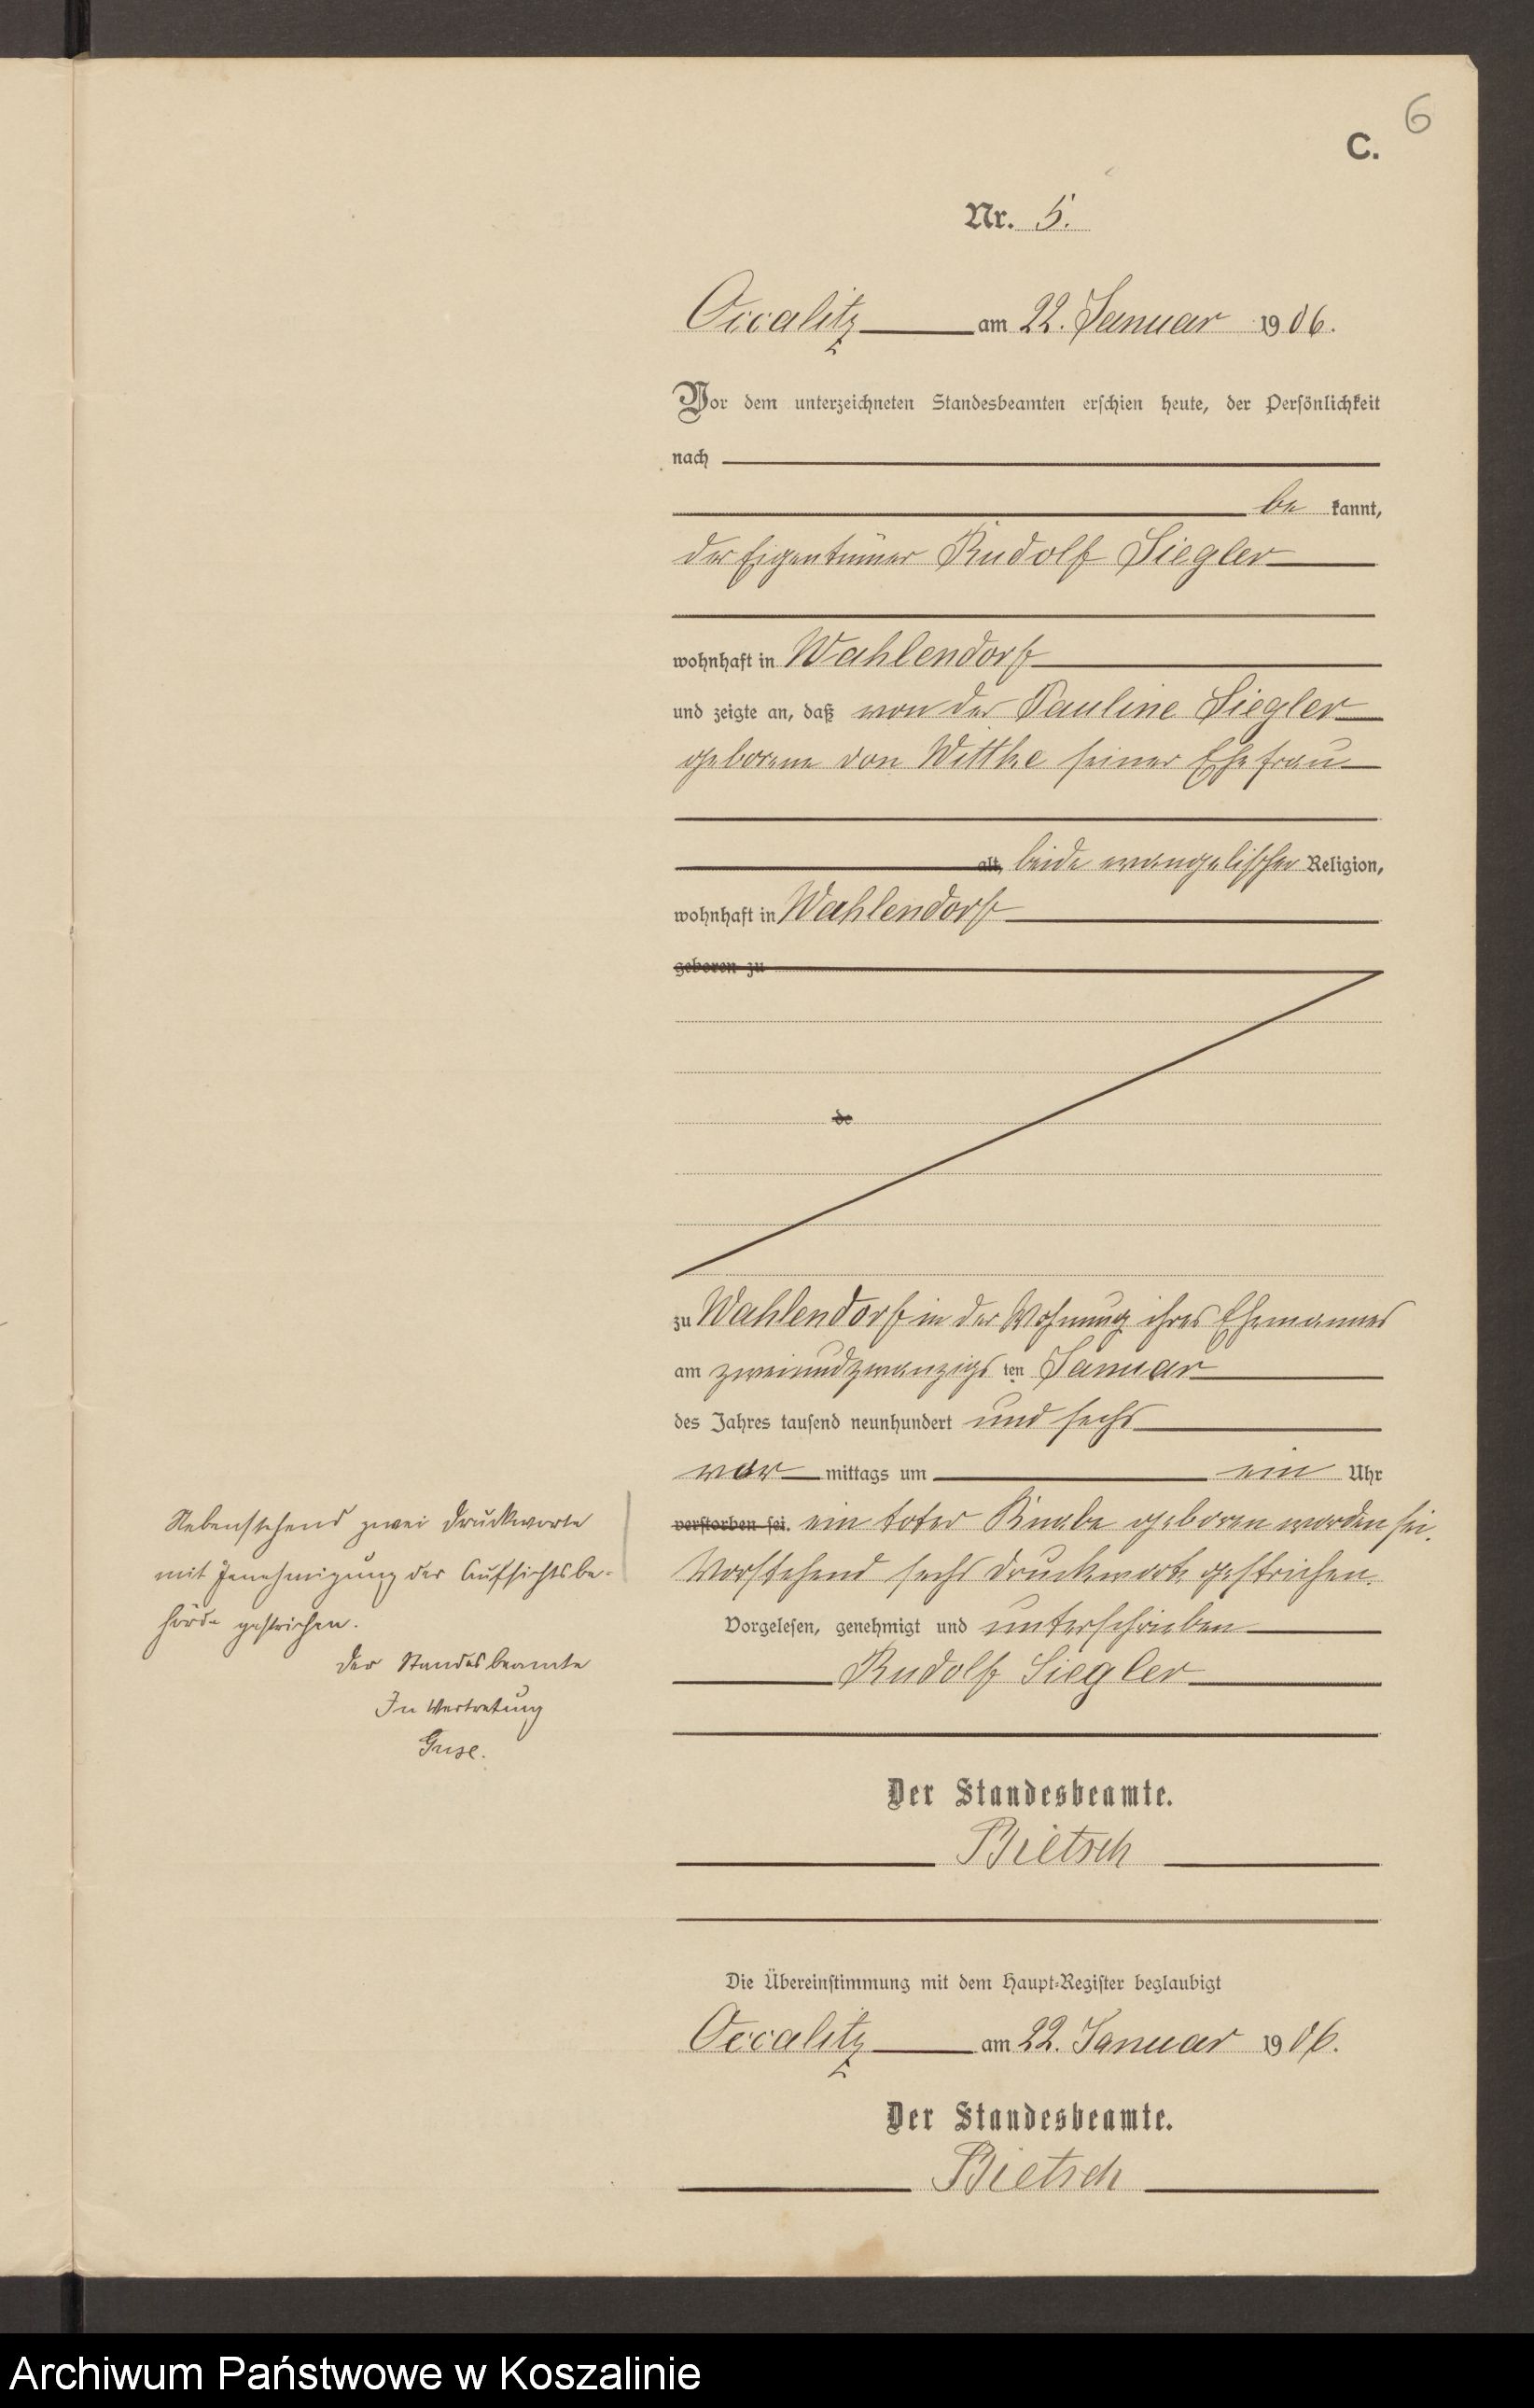 6
C.
Nr. 5.
Occalitz am 22. Januar 1906.
Vor dem unterzeichneten Standesbeamten erschien heute, der Persönlichkeit
nach
be kannt,
der Eigentümer Rudolf Siegler
wohnhaft in Wahlendorf
und zeigte an, daß von der Pauline Siegler
geborene von Witthe seiner Ehefrau
alt, beide evangelischer Religion,
wohnhaft in Wahlendorf
geboren zu
de
zu Wahlendorf in der Wohnung ihres Ehemannes
am zweiundzwanzigs ten Januar
des Jahres tausend neunhundert und sechs
vor mittags um ein Uhr
verstorben sei. ein toter Knabe geboren worden sei.
Vorstehend sechs Druckworte gestrichen.
Vorgelesen, genehmigt und unterschrieben
Rudolf Siegler
Nebenstehend zwei Druckworte
mit Genehmigung der Aufsichtsbe-
hörde gestrichen.
Der Standesbeamte
In Vertretung
Guse.
Der Standesbeamte.
Bietsch
Die Übereinstimmung mit dem Haupt-Register beglaubigt
Occalitz am 22. Januar 1906.
Der Standesbeamte.
Bietsch
Archiwum Państwowe w Koszalinie